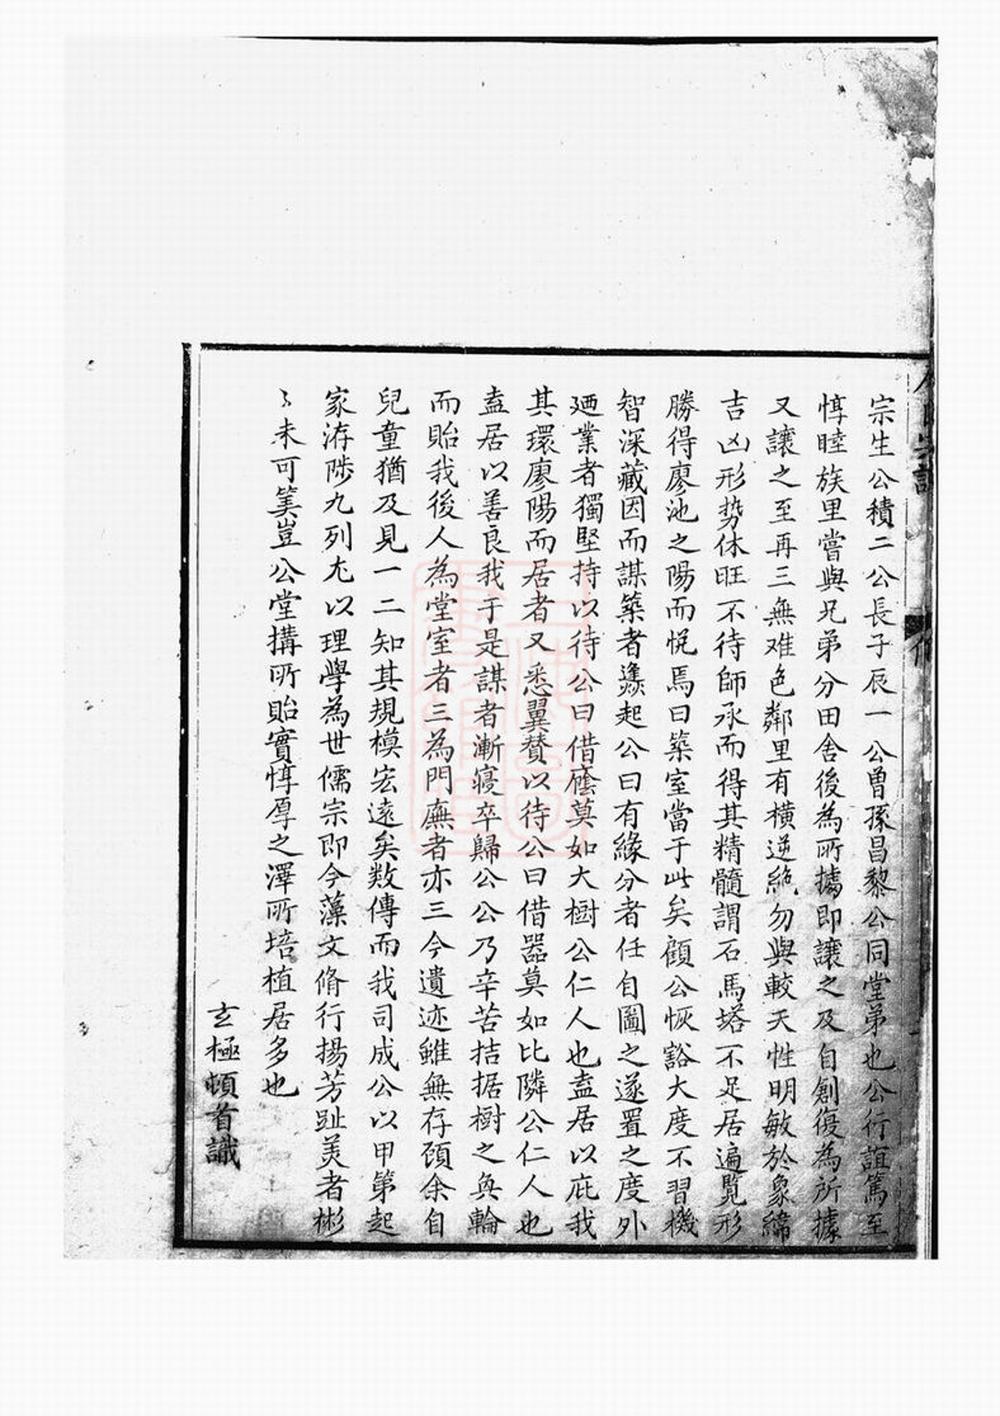 宗生公積二公長子辰一公曾孫昌黎公同堂弟也公行誼篤至
惇睦族里嘗與兄弟分田舍後為所據即讓之及自創復為所據
又讓之至再三無难色鄰里有橫逆絶勿與較天性明敏於象緯
吉凶形势休旺不待師承而得其精髓謂石馬塔不足居遍覽形
勝得廖池之陽而悅焉曰築室當于此矣顧公恢豁大度不習機
智深藏因而謀築者蠭起公曰有緣分者任自圖之遂置之度外
廼業者獨堅持以待公曰借廕莫如大樹公仁人也盍居以庇我
其環廖陽而居者又悉翼賛以待公曰借噐莫如比隣公仁人也
盍居以善良我于是謀者漸寢卒歸公公乃辛苦拮据樹之奐輪
而貽我後人為堂室者三為門廡者亦三今遺迹雖無存頋余自
兒童猶及見一二知其規模宏遠矣数傳而我司成公以甲第起
家洊陟九列尤以理學為世儒宗即今藻文脩行揚芳趾美者彬
〻未可筭豈公堂搆所貽實惇厚之澤所培植居多也
玄極頓首識